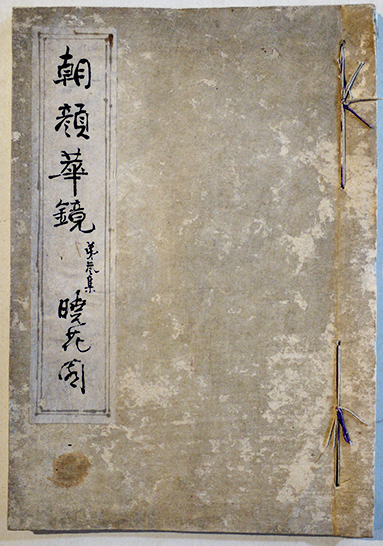 朝顔華鏡 第参集 曉花園